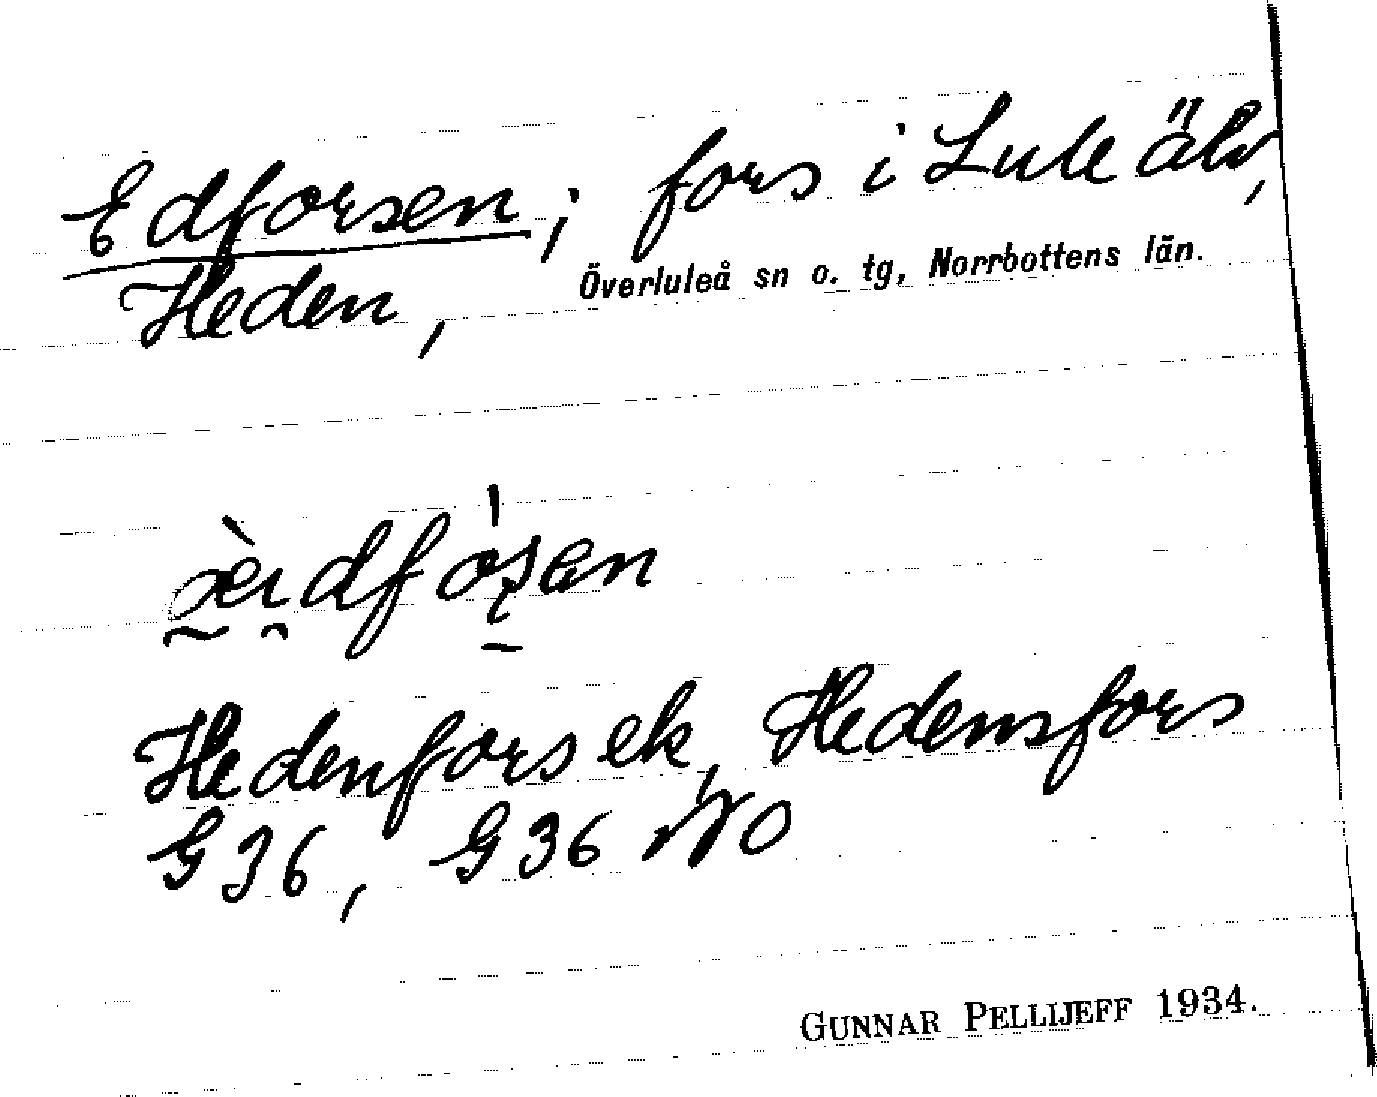 Edforsen; fors i Lule älv,
Heden, Överluleå sn o. tg, Norrbottens län.
Hedenfors ek, Hedensfors
G36, G36 NO
GUNNAR PELLIJEFF 1934.